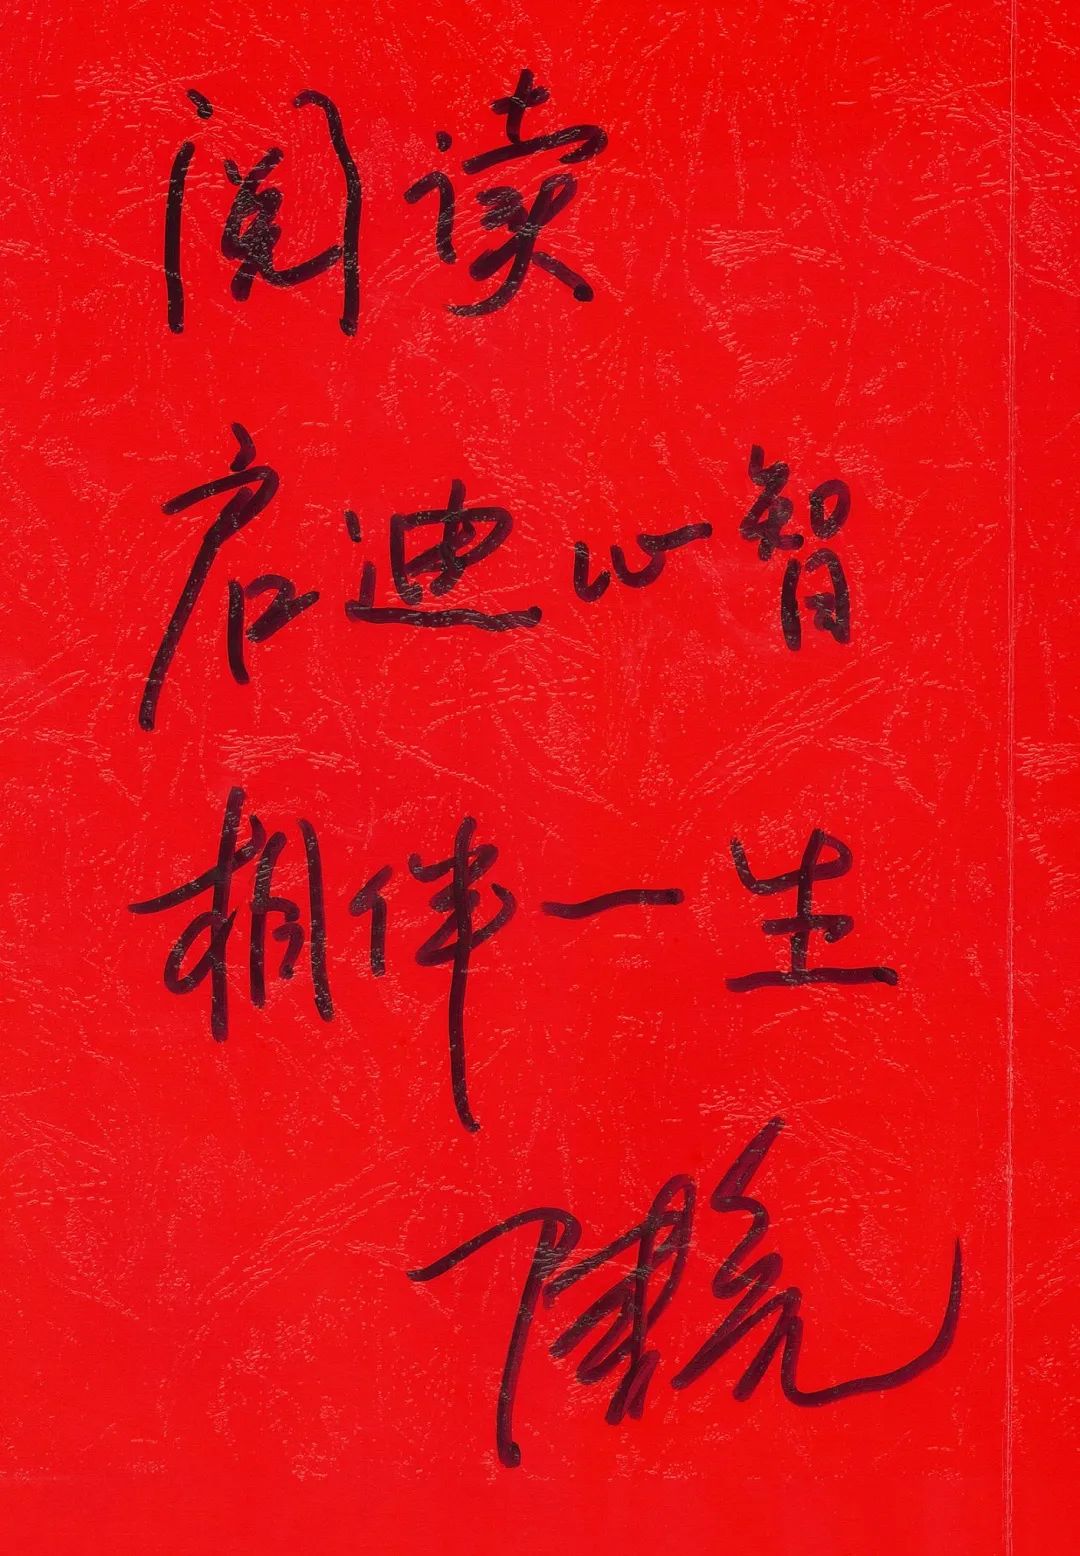 阅读
启迪心智
相伴一生